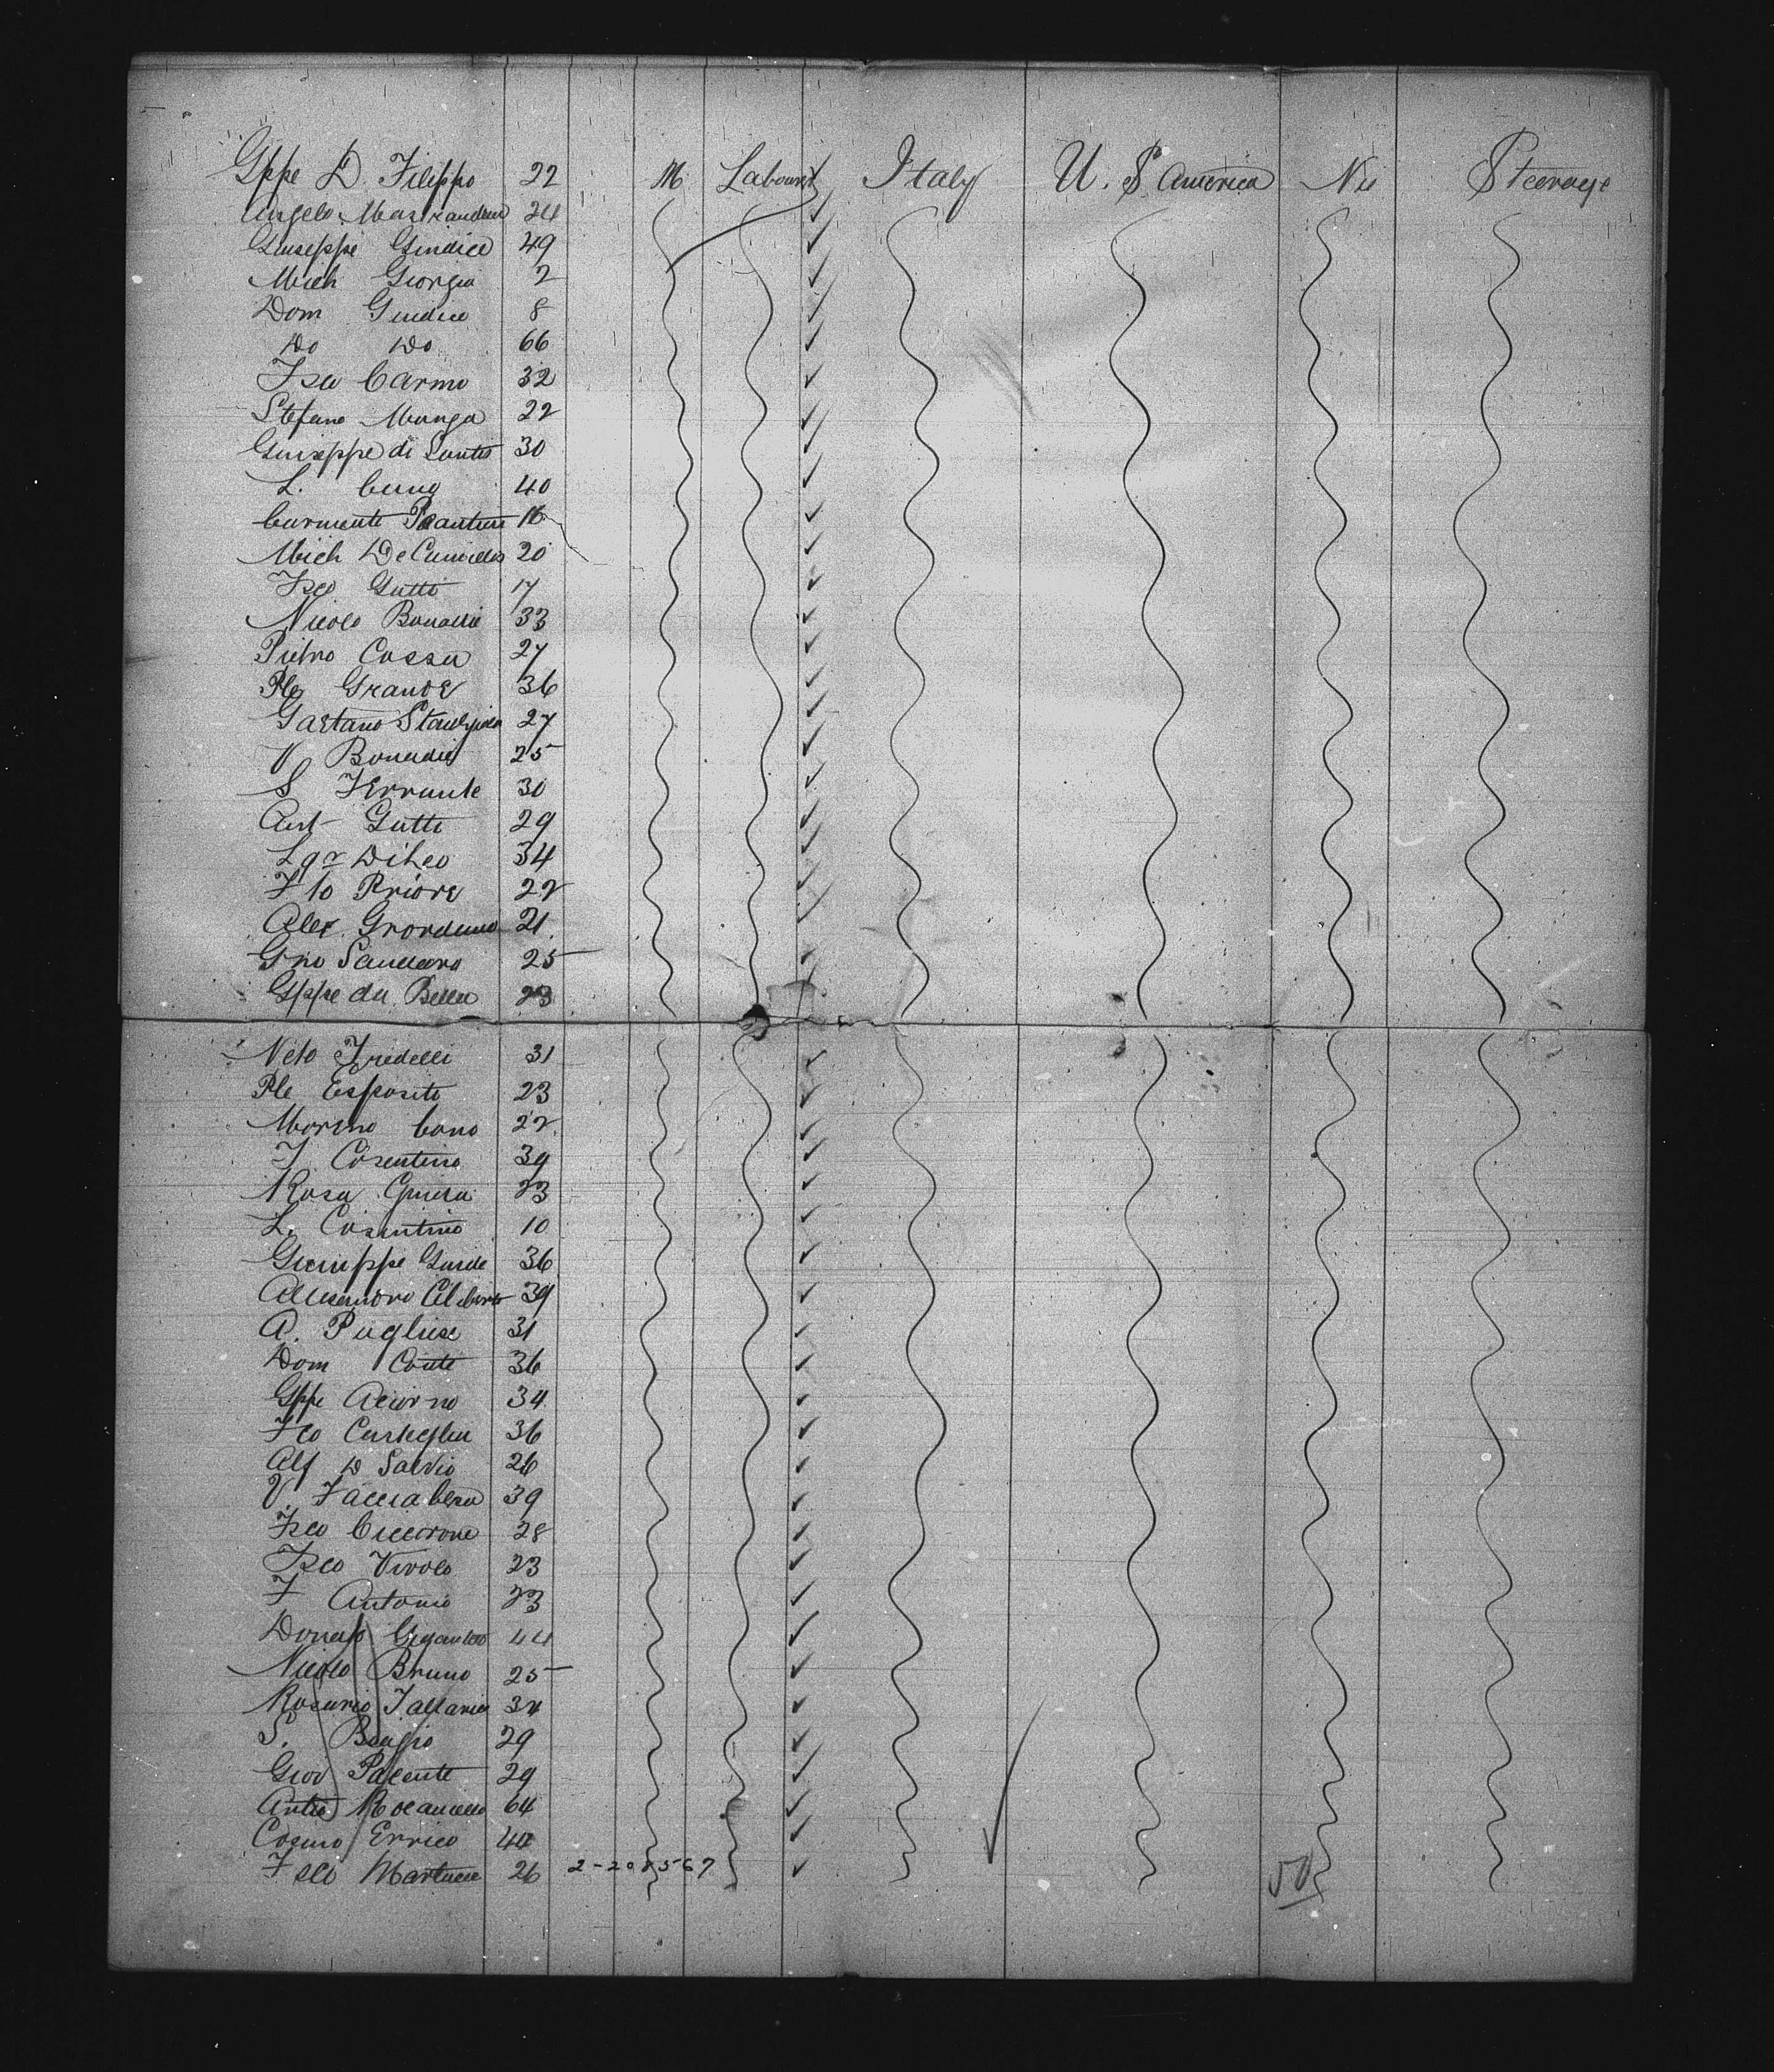 Gppe D. Filippo 22 M Labourer Italy U. S America Nil Steerage
Angelo 24
Giuseppe Giudice 49
Mich Giorgio 2
Dom Giudice 8
Do Do 66
Fsco Carmo 32
Stefano Manga 22
Giuseppe di Santis 30
L. Cuna 40
Carmente 16
Mich De Camillis 20
Fsco Gutti 17
Nicolo Bonadie 33
Pietro Cassa 27
Ple Grande 36
Gaetano 27
V Bonadie 25
S Ferrante 30
Ant Gutti 29
Lgr DiLeo 34
F lo Priore 22
Alex. Giordano 21
Gno 25
Gppe da Bella 23
Neto Fredelli 31
Ple Esposito 23
Marino Cono 22
F. Cosentino 39
Rosa Guida 23
L. Cosentino 10
Giuseppe Guide 36
Allesandro Ciliberto 39
A. Pugliese 31
Dom Conte 36
Gppe Acierno 34
Fco Casteglia 36
Alf D Salvio 26
V. Facciabene 39
Fsco Cicerone 28
Fsco Vivolo 23
F Antonio 23
Donato Gigantero 44
Nicolo Bruno 25
Rosario Fallarica 34
S. Biagio 29
Giov Pacente 29
Antio 64
Cosmo Errico 44
Fsco Martucci 26 2-208567 50